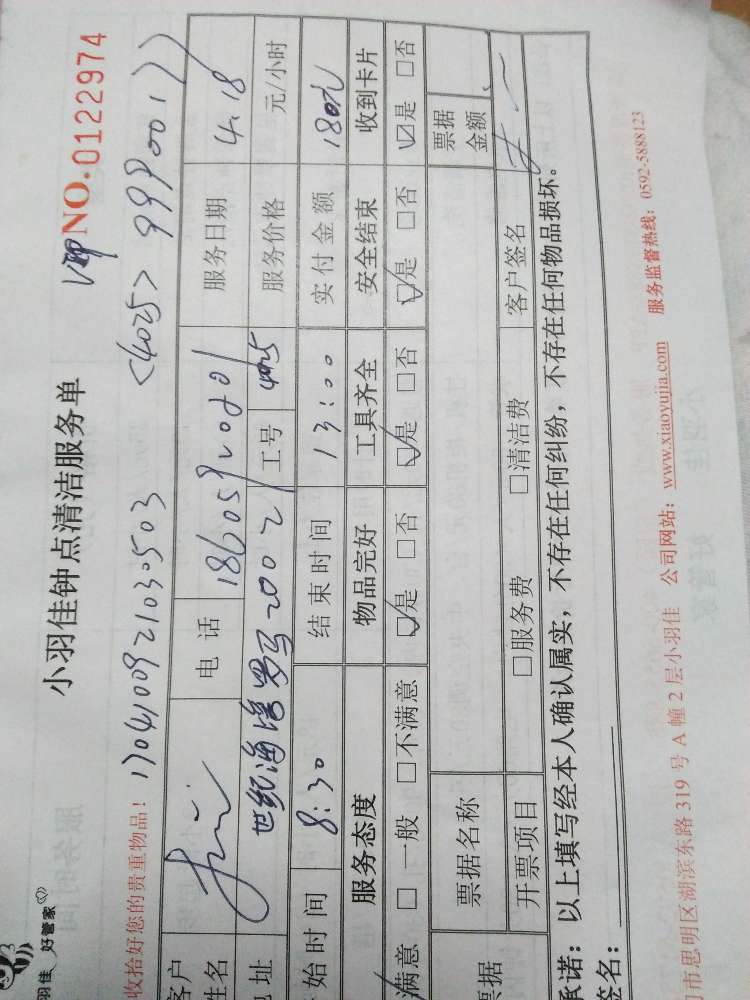 小羽佳钟点清洁服务单
VIP NO.0122974
羽佳 好管家
收拾好您的贵重物品! 1704100921030503 <4025> 9990017)
客户姓名 电话 18605920201 服务日期 4.18
地址 世纪海湾罗马2002 工号 4025 服务价格 元/小时
始时间 8:30 结束时间 13:00 实付金额 180元
服务态度 物品完好 工具齐全 安全结束 收到卡片
满意 □一般 □不满意 ☑是 □否 ☑是 □否 ☑是 □否 ☑是 □否
票据 票据名称 票据金额
开票项目 □服务费 □清洁费 客户签名
承诺:以上填写经本人确认属实,不存在任何纠纷,不存在任何物品损坏。
签名:
门市思明区湖滨东路319号A幢2层小羽佳 公司网站:www.xiaoyujia.com 服务监督热线:0592-5888123